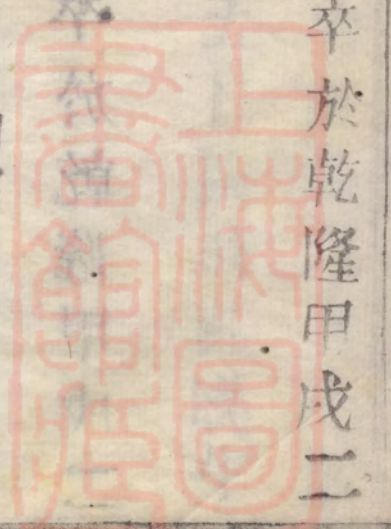 卒於乾隆甲戌二
上海圖
書館藏